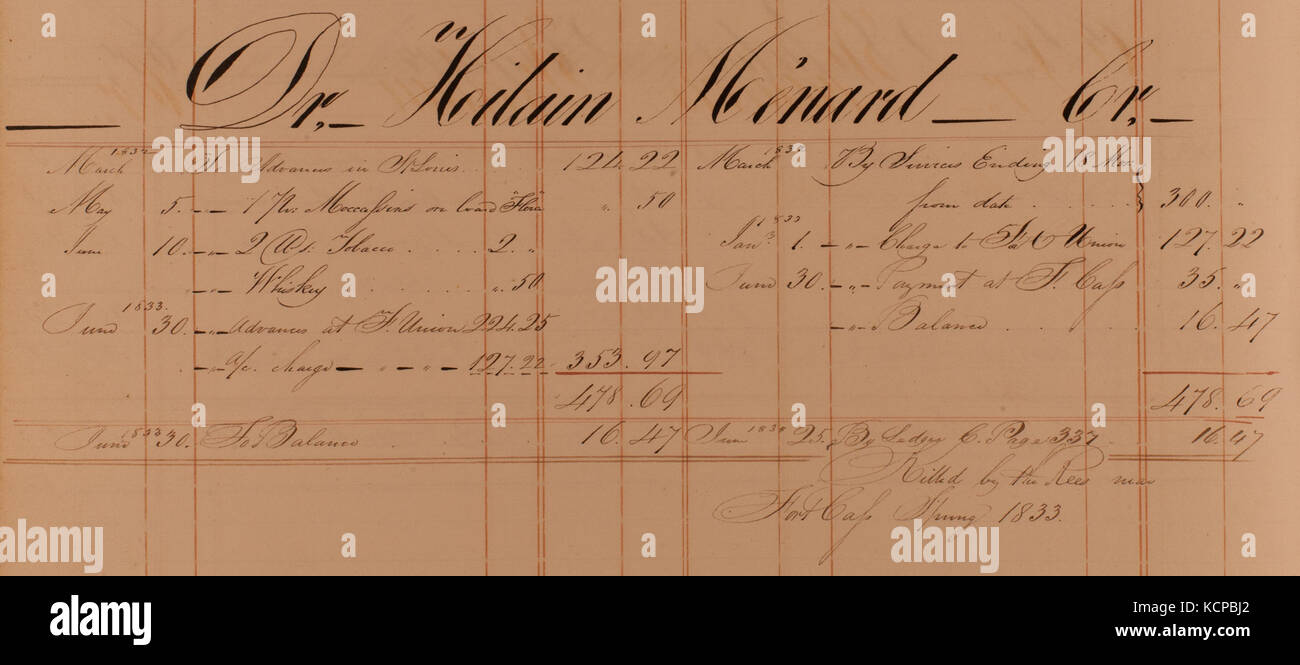 Dr, Hilain Ménard Cr,
March 1832 To Advances in St Louis 124.22
May 5. -"- 1 Pr. Moccassins on board "Flora" ". 50
June 10. -"- 2 @ Tobacco 2. "
-"- Whiskey ". 50
June 1833. 30. -"- Advances at Ft. Union 224.25
-"- a/c. charge -"-"- 127.22 353.97
478.69
June 1833 30. To Balance 16.47
March By Services Ending 18 Mos.
from date 300. "
Jany. 1833 1. -"- Charge to Union 127.22
June 30. -"- Payment at Ft. Cass 35. "
-"- Balance 16.47
478.69
June 25. By Ledger C. Page 337. 16.47
Killed by the Rees near
Fort Cass Spring 1833.
alamy
Image ID: KCPBJ2
www.alamy.com